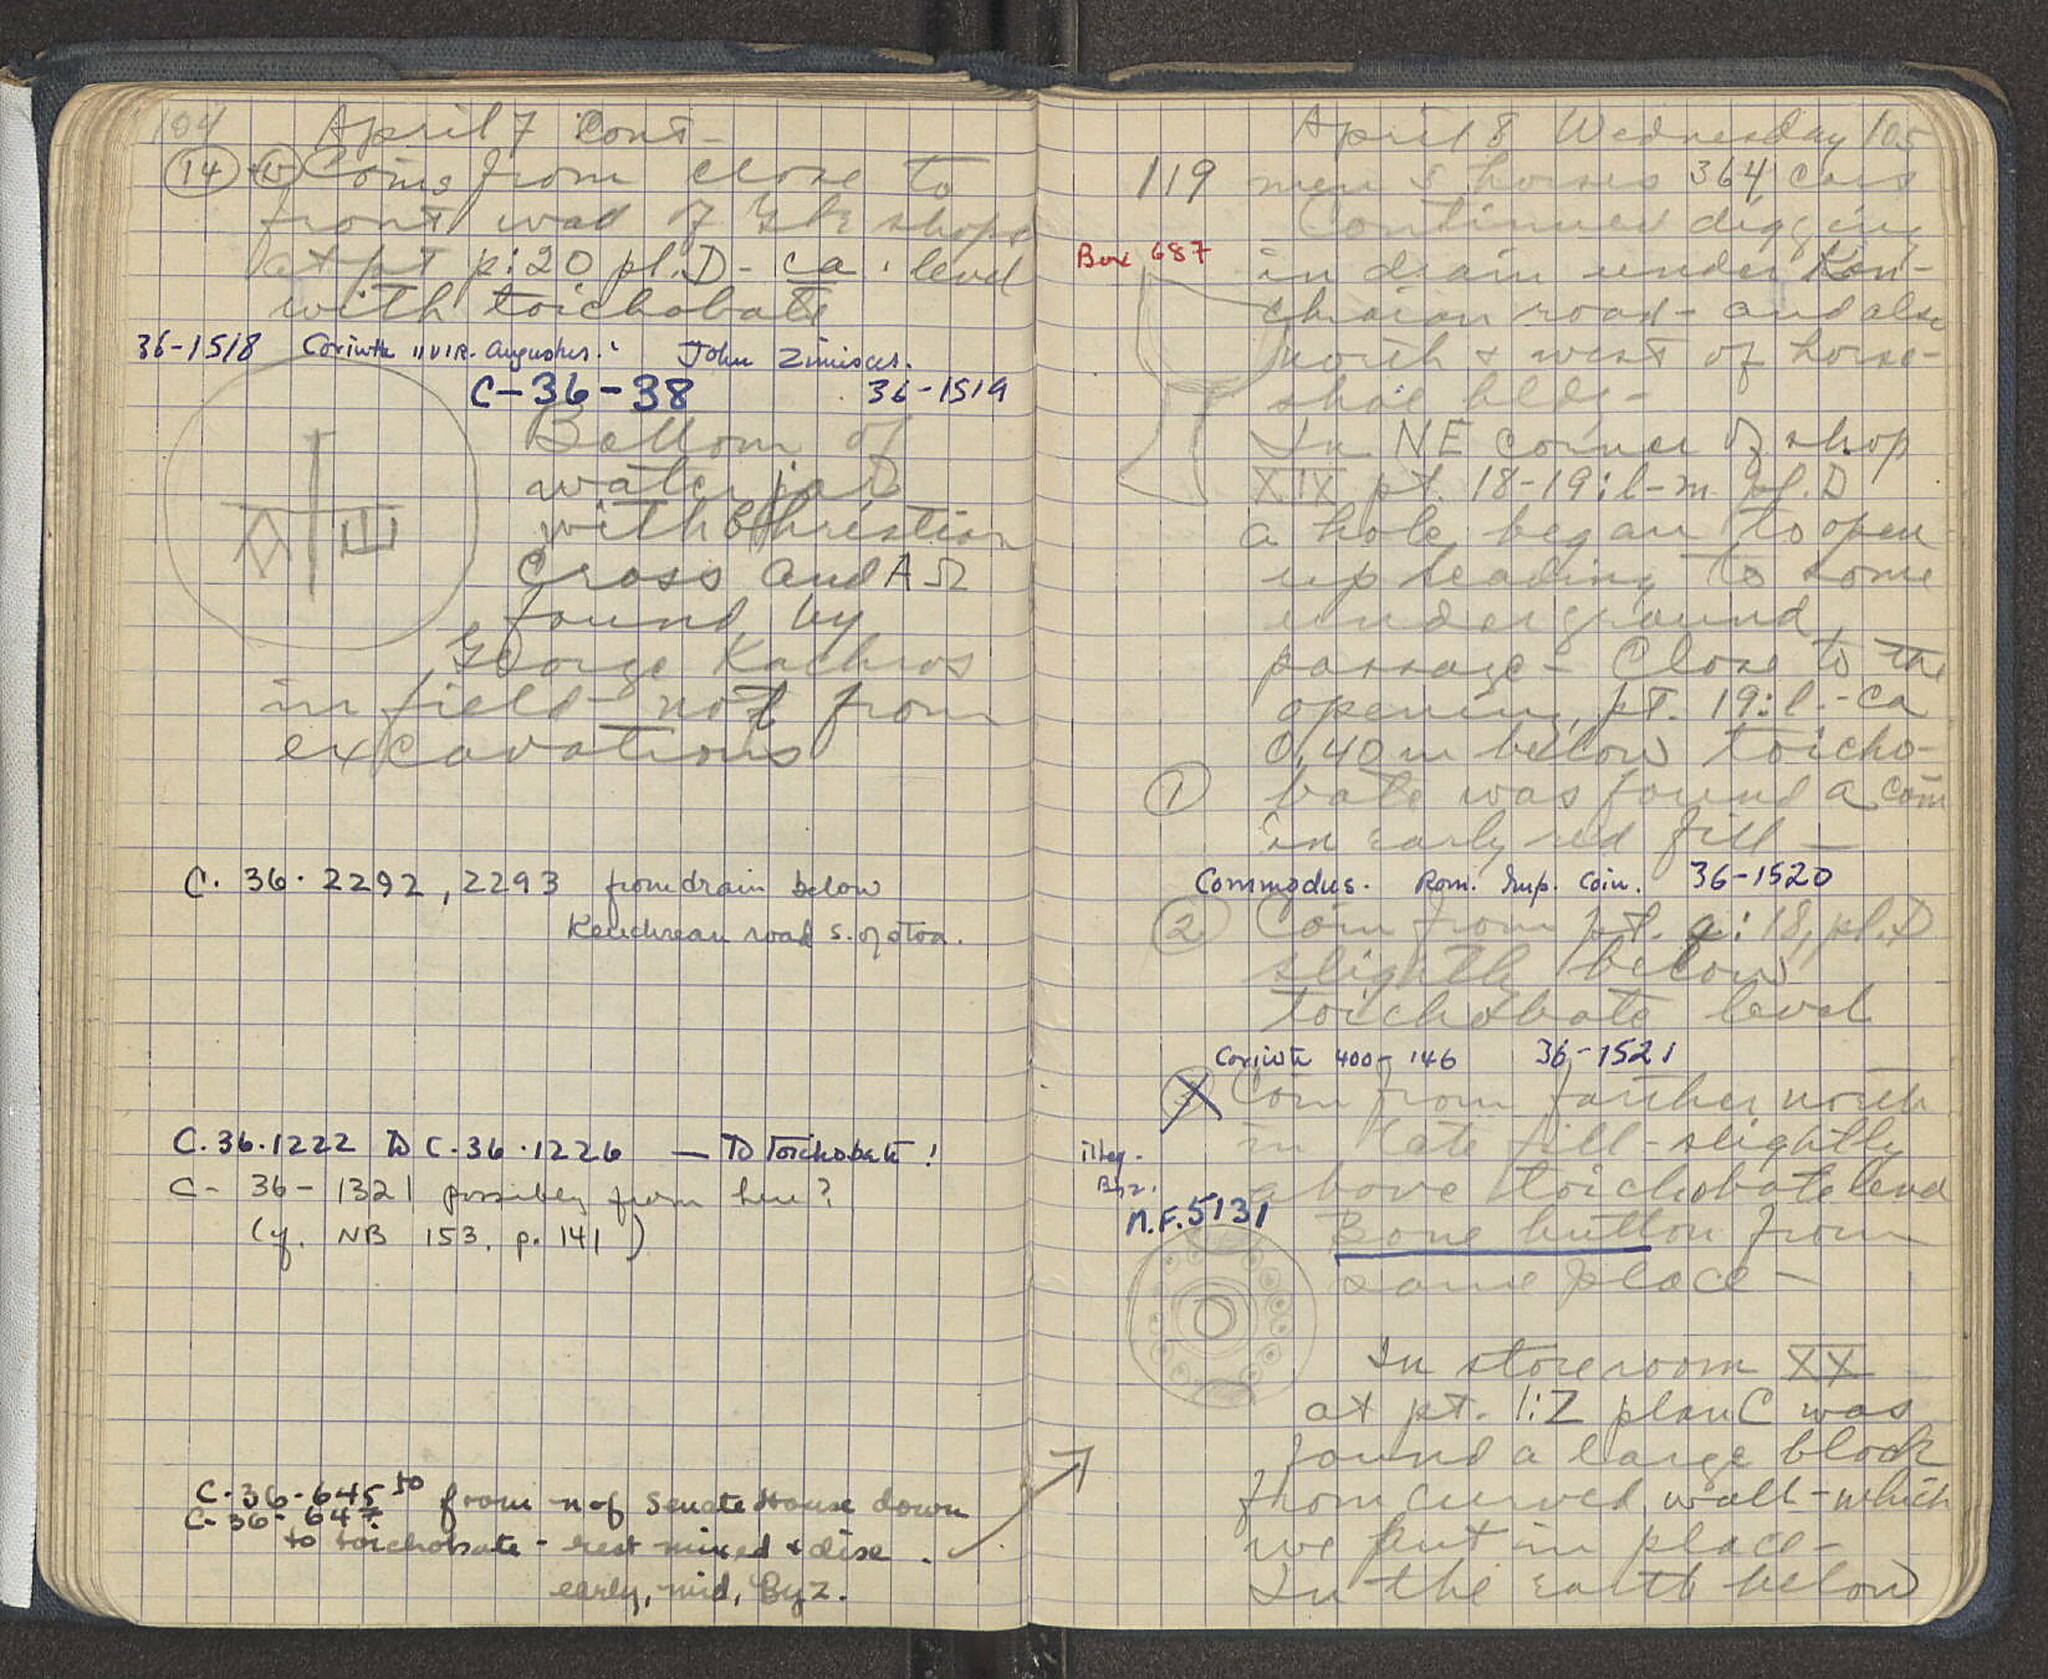 104 April 7 Cont-
14 + 15 Coins from close to
front wall of Gk shops
at pt p:20 pl. D - ca. level
with toichobate
36-1518 Corinth IIVIR. Augustus. John Zimisces.
C-36-38 36-1519
Bottom of
water jar
with Christian
Cross and A Ω
found by
George Kachros
in field - not from
excavations
C. 36. 2292, 2293 from drain below
Kenchrean road S. of stoa.
C. 36. 1222 to C. 36. 1226 — To toichobate!
C- 36- 1321 possibly from here?
(cf. NB 153, p. 141)
C-36-645 50 from n of Senate House down
C-36-647
to toichobate - rest mixed & disc.
early, mid, Byz.
April 8 Wednesday 105
119 men 5 horses 364 cars
Continued digging
Box 687
in drain under Ken-
chraian road - and also
north & west of horse-
shoe bldg-
In NE corner of shop
XIX pt. 18-19:l-m pl. D
a hole began to open
up leading to some
underground
passage - Close to the
opening, pt. 19:l - ca
0.40 m below toicho-
1 bate was found a coin
in early red fill —
Commodus. Rom. Imp. Coin. 36-1520
2 Coin from pt. q:18, pl. D
slightly below
toichobate level
Corinth 400-146 36-1521
3 Coin from farther north
in late fill - slightly
illeg.
Byz.
above toichobate level
M.F. 5131
Bone button from
same place —
In storeroom XX
at pt. 1:Z plan C was
found a large block
from curved wall - which
we put in place -
In the earth below